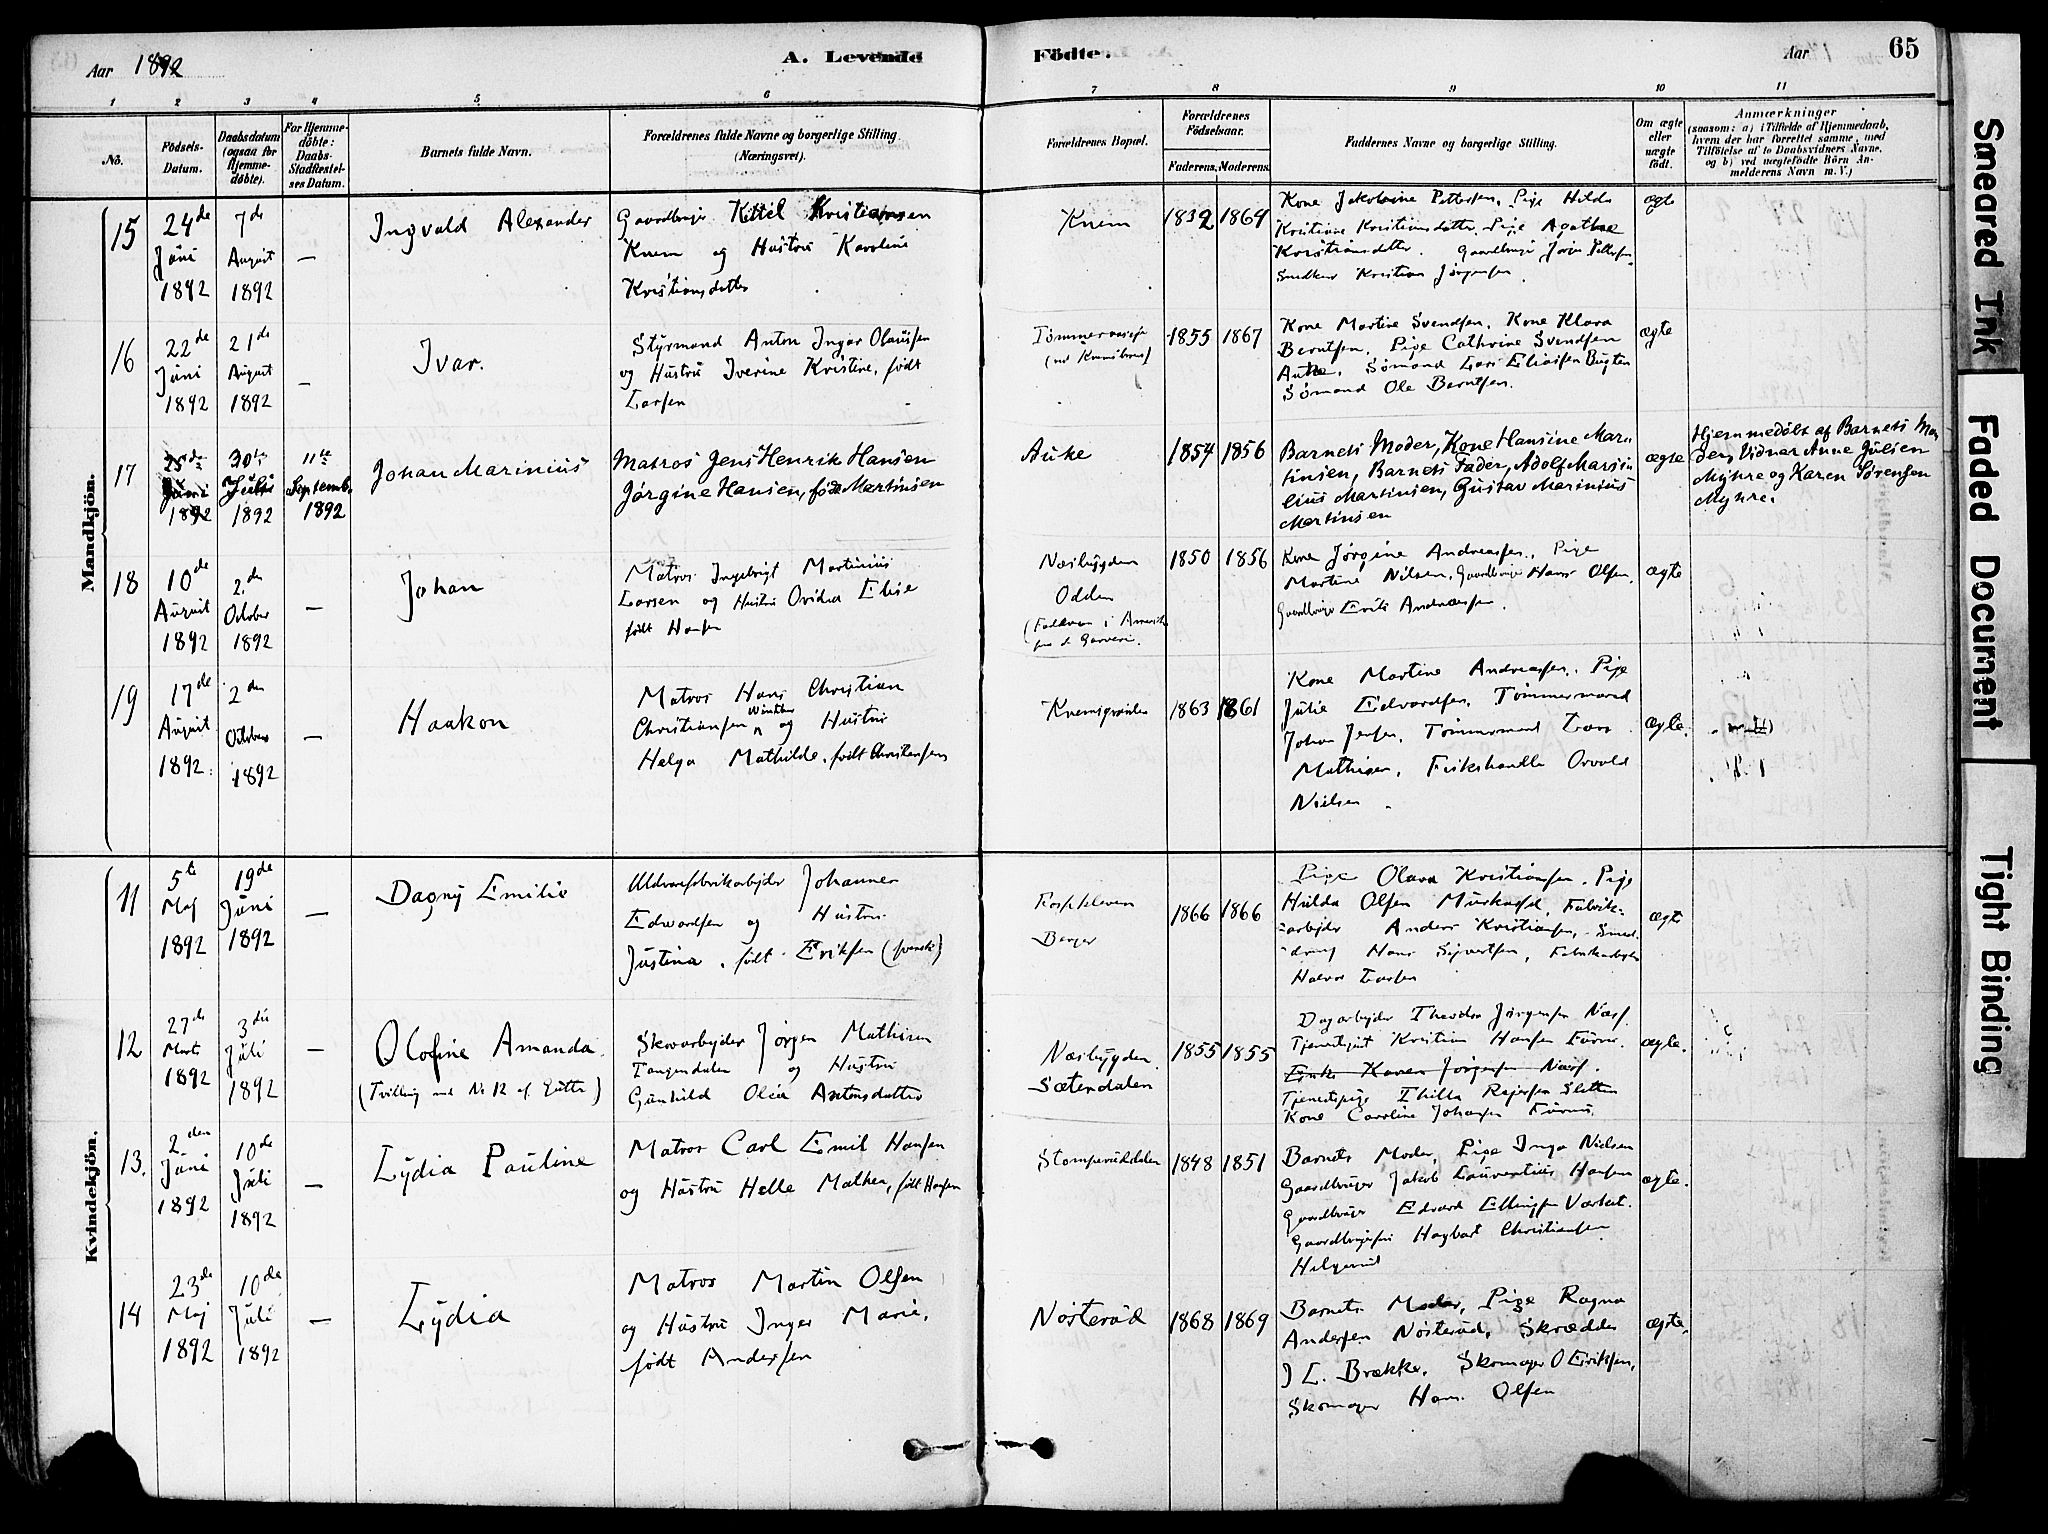 Aar 1892 A. Levende
Födte. Aar 65
1 2 3 4 5 6 7 8 9 10 11
No.
Födsels-Datum.
Daabsdatum (ogsaa for Hjemmedöbte).
For Hjemmedöbte: Daabs-Stadfæstelses Datum.
Barnets fulde Navn.
Forældrenes fulde Navne og borgerlige Stilling. (Næringsvei).
Forældrenes Bopæl.
Forældrenes Födselsaar.
Faderens. Moderens.
Faddernes Navne og borgerlige Stilling.
Om ægte eller uægte födt.
Anmærkninger
(saasom: a) i Tilfælde af Hjemmedaab, hvem der har forrettet samme, med Tilföielse af to Daabsvidners Navne, og b) ved uægtefödte Börn Anmelderens Navn m. V.)
Mandkjön.
15
24de Juni 1892
7de August 1892
—
Ingvald Alexander
Gaardbruger Kittil Kristiansen
Knem og Hustru Karoline
Kristiansdatter
Knem
1832 1864
Kone Jakobine Pettersen, Pige Hilda
Kristiane Kristiansdatter, Pige Agathe
Kristiansdatter. Gaardbruger Jørgen Pettersen
Snedker Kristian Jørgensen
ægte
16
22de Juni 1892
21de August 1892
—
Ivar.
Styrmand Anton Ingar Olausen
og Hustru Iverine Kristine, født
Larsen
1855 1867
Kone Martine Svendsen, Kone Klara
Berntsen, Pige Cathrine Svendsen
Auke, Sømand Lars Eliasen Bugten
Sømand Ole Berntsen.
ægte
17
25de Juni 1892
30te Juli 1892
11te Septemb. 1892
Johan Marinius
Matros Jens Henrik Hansen
Jørgine Hansen, født Martinsen
Auke
1854 1856
Barnets Moder, Kone Hansine Mar-
tinsen, Barnets Fader, Adolf Marsi-
lius Martinsen, Gustav Marinius
Martinsen
ægte
Hjemmedøbt af Barnets Mo-
der, Vidner Anne Julsen
Myhre og Karen Sørensen
Myhre.
18
10de August 1892
2den October 1892
—
Johan
Matros Ingebrigt Martinius
Larsen og Hustru Ovidia Elise
født Hansen
Næsbygden
Odden
1850 1856
Kone Jørgine Andreassen, Pige
Martine Nilsen, Gaardbruger Hans Olsen,
Gaardbruger Erik Andreassen.
ægte
19
17de August 1892
2den October 1892
—
Haakon
Matros Hans Christian
Christiansen Winther og Hustru
Helga Mathilde, født Christensen
1863 1861
Kone Martine Andreassen, Pige
Julie Edvardsen, Tømmermand
Johan Jensen, Tømmermand Lars
Mathisen, Osvald
Nielsen
ægte.
Kvindekjön.
11
5te Maj 1892
19de Juni 1892
—
Dagny Emilie
Uldvarefabrikarbejder Johannes
Edwardsen og Hustru
Justina, født Eriksen (svensk)
Berger
1866 1866
Pige Olava Kristiansen, Pige
Hilda Olsen, Fabrik-
arbejder Anders Kristiansen, Smed-
dreng Hans Sivertsen, Fabrikarbejder
Halvor Larsen
ægte
12
27de Marts 1892
3die Juli 1892
—
Olofine Amanda.
(Tvilling med No 12 af Gutter)
Skovarbejder Jørgen Mathisen
Tangendalen og Hustru
Gunhild Olea Antonsdatter
Næsbygden
Sætendalen
1855 1855
Dagarbejder Theodor Jørgensen Næss.
Tjenestegut Kristian Hansen
Enke Karen Jørgensen Næss.
Tjenestepige Thilla Sletten
Kone Caroline Johansen
ægte.
13.
2den Juni 1892
10de Juli 1892
—
Lydia Pauline
Matros Carl Emil Hansen
og Hustru Helle Mathea, født Hansen
Stomperuddalen
1848 1851
Barnets Moder, Pige Inga Nielsen
Gaardbruger Jakob Laurentius Hansen
Gaardbruger Edvard Ellingsen
Hagbart Christiansen
ægte.
14
23de Maj 1892
10de Juli 1892
—
Lydia
Matros Martin Olsen
og Hustru Inger Marie,
født Andersen
Nøsterud
1868 1869
Barnets Moder, Pige Ragna
Andersen Nøsterud, Skrædder
J L. Brække, Skomager O Eriksen,
Skomager Hans Olsen
ægte.
Smeared Ink
Faded Document
Tight Binding